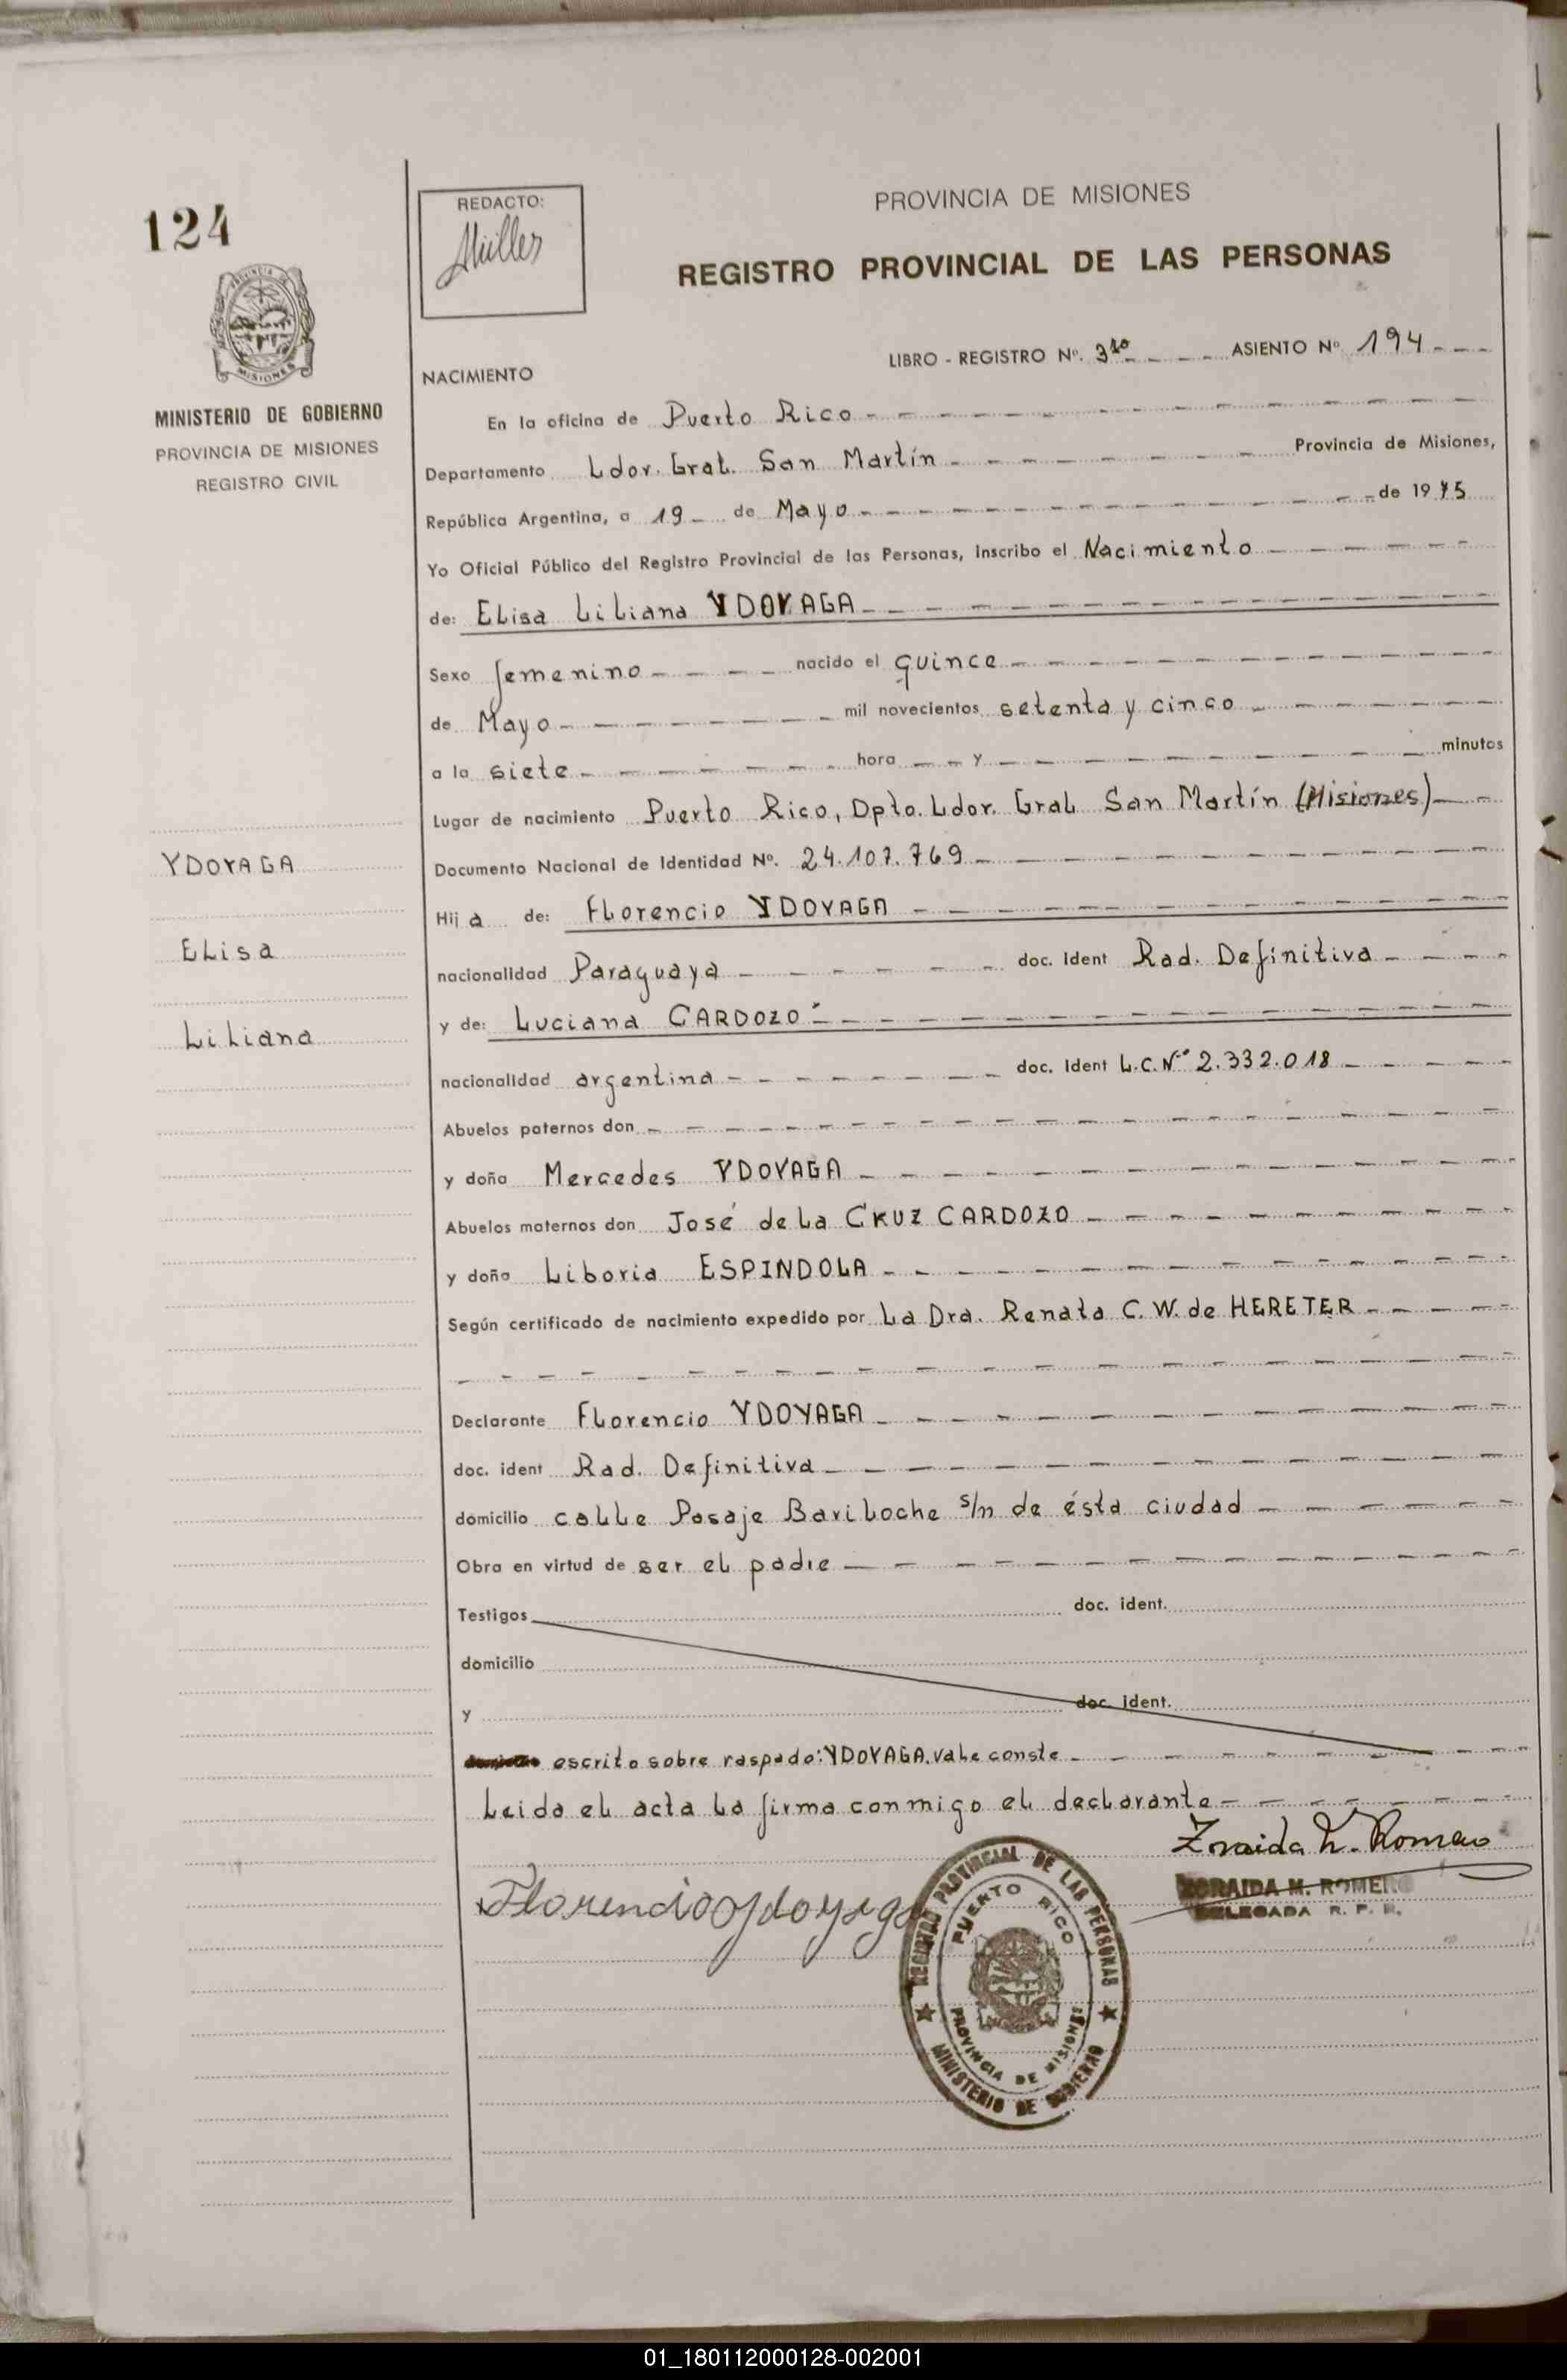 124
MISIONES
MINISTERIO DE GOBIERNO
PROVINCIA DE MISIONES
REGISTRO CIVIL
YDOYAGA
Elisa
Liliana
REDACTO:
Müller
PROVINCIA DE MISIONES
REGISTRO PROVINCIAL DE LAS PERSONAS
LIBRO - REGISTRO Nº. 3ro ASIENTO Nº 194
NACIMIENTO
En la oficina de Puerto Rico
Departamento Ldor. Gral. San Martín Provincia de Misiones,
República Argentina, a 19 de Mayo de 1975
Yo Oficial Público del Registro Provincial de las Personas, inscribo el Nacimiento
de: Elisa Liliana YDOYAGA
Sexo femenino nacido el quince
de Mayo mil novecientos setenta y cinco
a la siete hora y minutos
Lugar de nacimiento Puerto Rico, Dpto. Ldor. Gral San Martín (Misiones)
Documento Nacional de Identidad Nº. 24.107.769
Hija de: Florencio YDOYAGA
nacionalidad Paraguaya doc. ident Rad. Definitiva
y de: Luciana CARDOZO
nacionalidad argentina doc. ident L.C.Nº 2.332.018
Abuelos paternos don
y doña Mercedes YDOYAGA
Abuelos maternos don José de la CRUZ CARDOZO
y doña Liboria ESPINDOLA
Según certificado de nacimiento expedido por La Dra. Renata C. W. de HERETER
Declarante Florencio YDOYAGA
doc. ident Rad. Definitiva
domicilio calle Pasaje Bariloche s/n de ésta ciudad
Obra en virtud de ser el padre
Testigos doc. ident.
domicilio
y doc. ident.
escrito sobre raspado: YDOYAGA. Vale conste
Leida el acta la firma conmigo el declarante
Zoraida M. Romero
ZORAIDA M. ROMERO
DELEGADA R. P. P.
Florencio Ydoyaga
REGISTRO PROVINCIAL DE LAS PERSONAS
PUERTO RICO
PROVINCIA DE MISIONES
MINISTERIO DE GOBIERNO
01_180112000128-002001